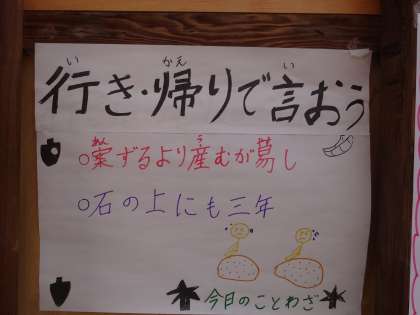 行き・帰りで言おう
○案ずるより産むが易し
○石の上にも三年
今日のことわざ